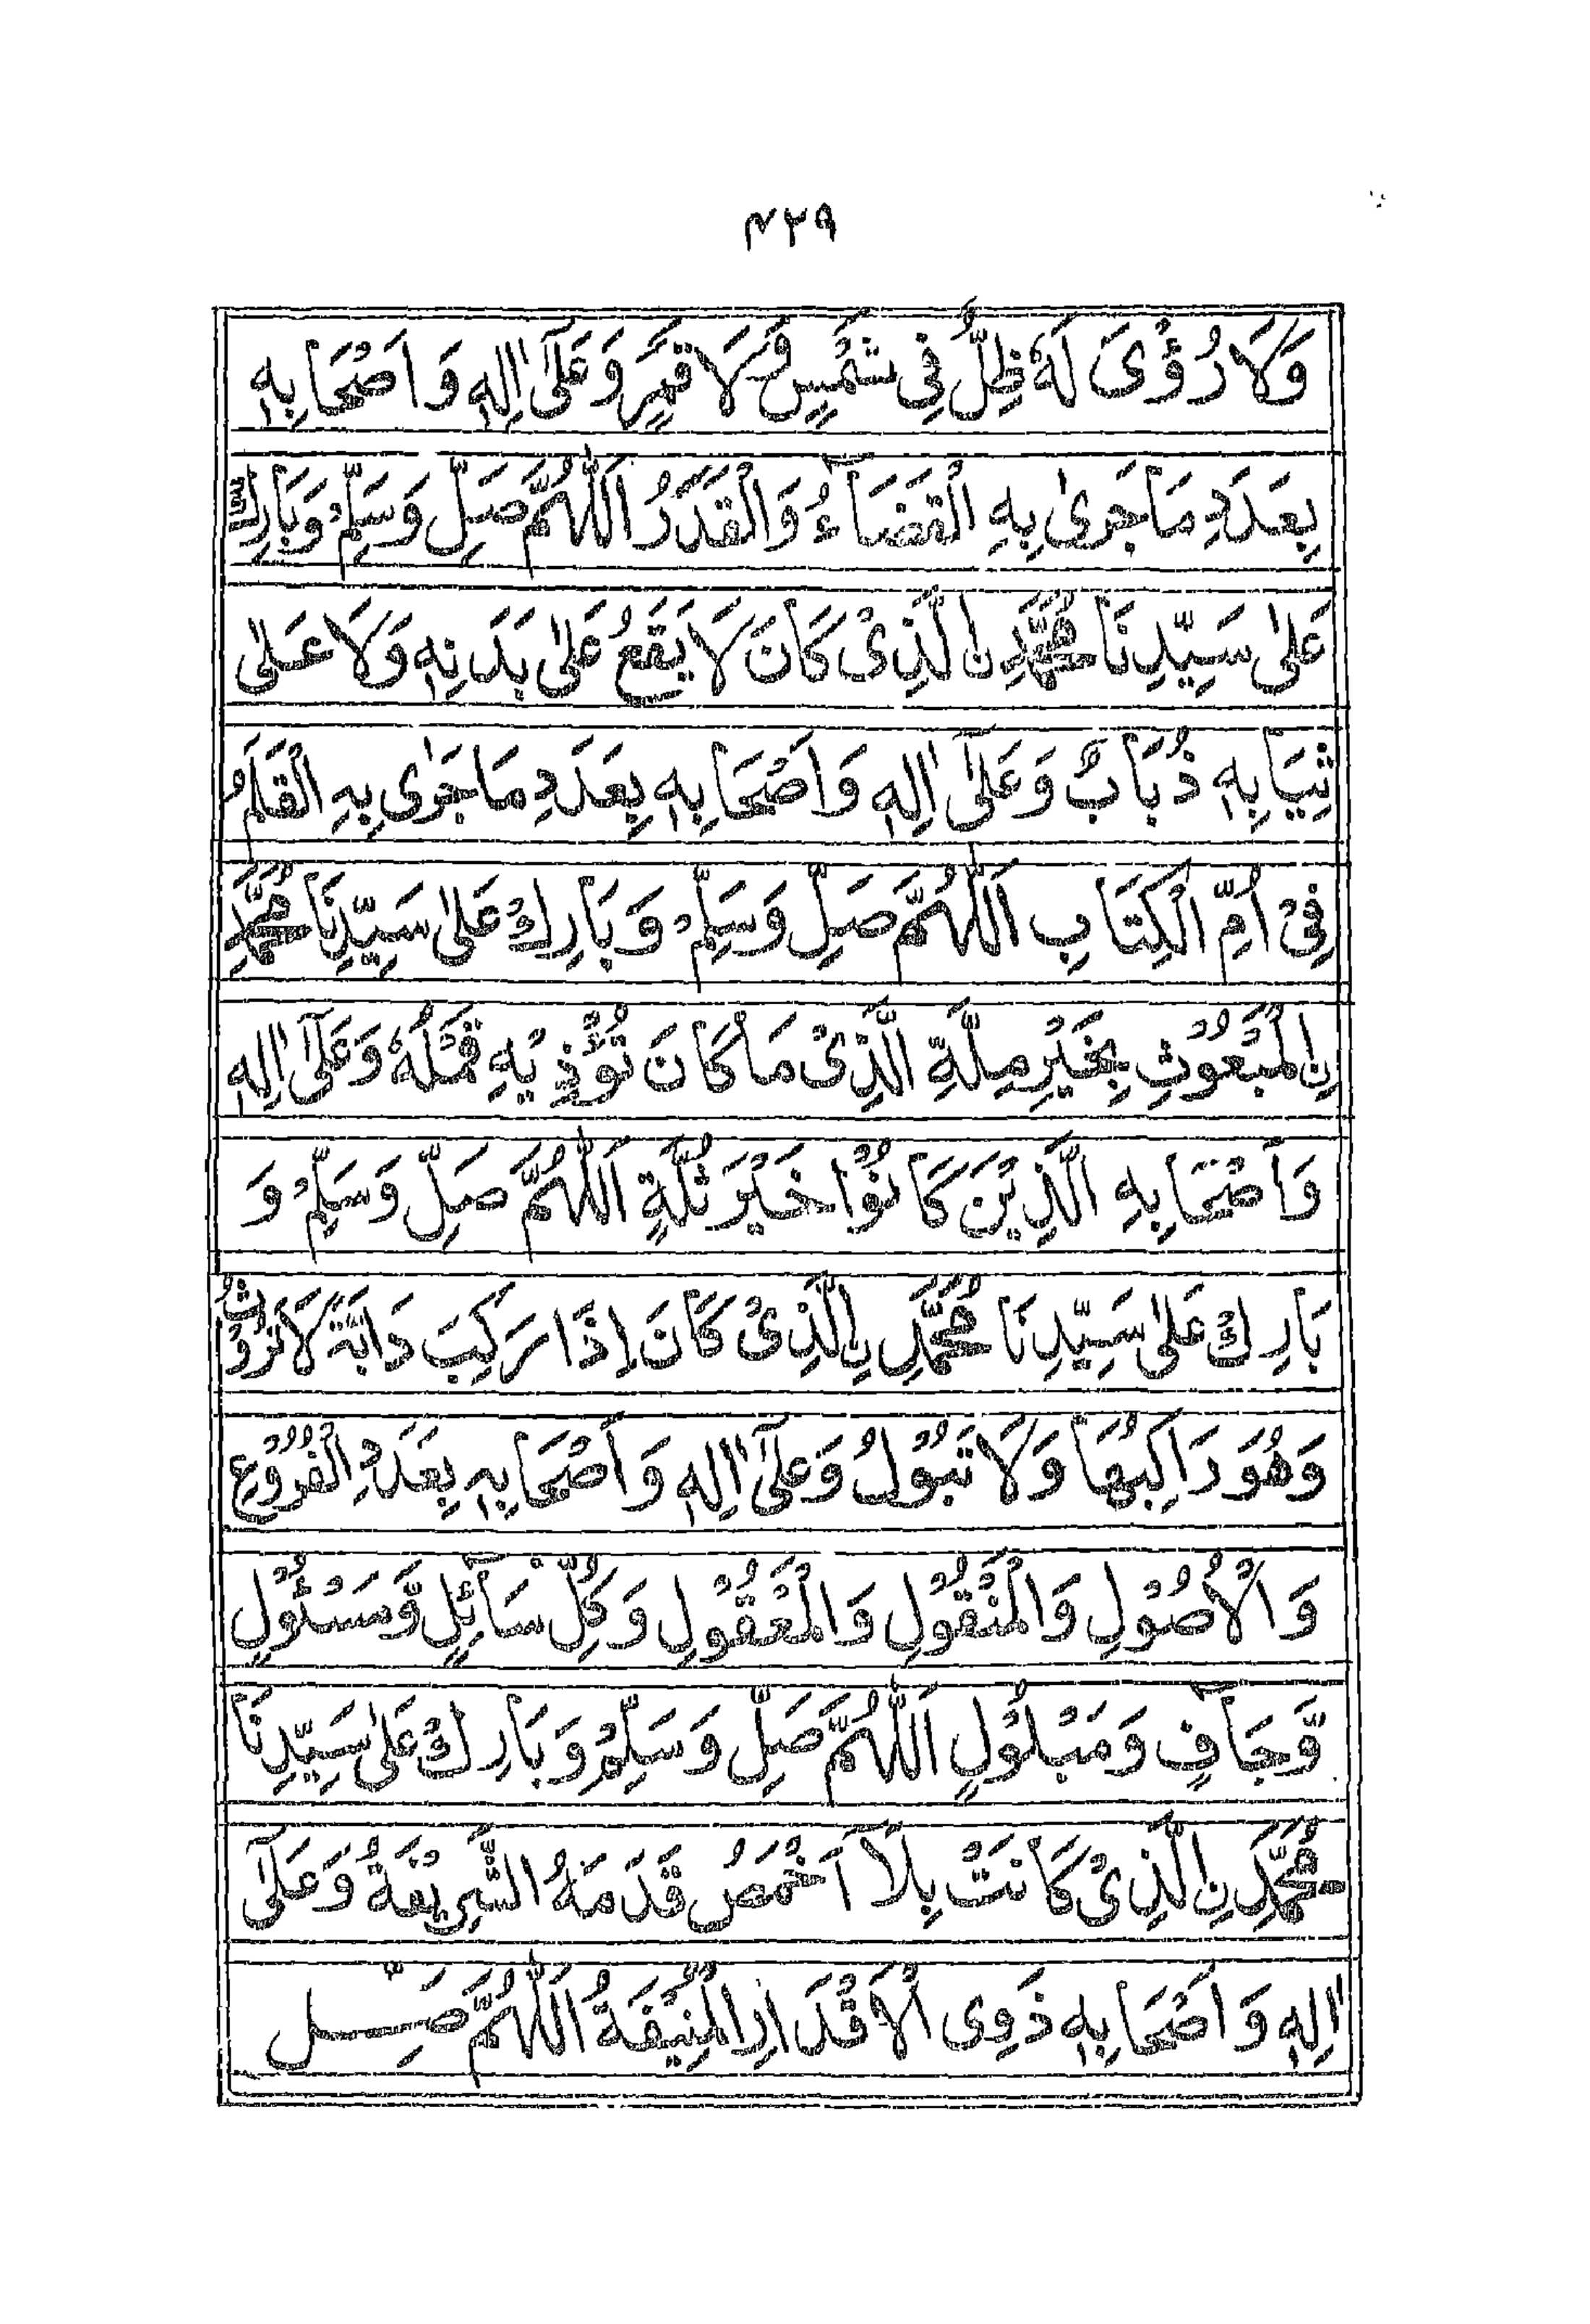 ۴۲۹
وَلَا رُؤِىَ لَهٗ ظِلٌّ فِى شَمْسٍ وَّلَا قَمَرٍ وَعَلٰٓى اٰلِهٖ وَاَصْحَابِهٖ
بِعَدَدِ مَا جَرٰى بِهِ الْقَضَآءُ وَالْقَدَرُ اَللّٰهُمَّ صَلِّ وَسَلِّمْ وَبَارِكْ
عَلٰى سَيِّدِنَا مُحَمَّدِ نِ الَّذِىْ كَانَ لَا يَقَعُ عَلٰى بَدَنِهٖ وَلَا عَلٰى
ثِيَابِهٖ ذُبَابٌ وَعَلٰٓى اٰلِهٖ وَاَصْحَابِهٖ بِعَدَدِ مَا جَرٰى بِهِ الْقَلَمُ
فِىْ اُمِّ الْكِتَابِ اَللّٰهُمَّ صَلِّ وَسَلِّمْ وَبَارِكْ عَلٰى سَيِّدِنَا مُحَمَّدِ
نِ الْمَبْعُوْثِ بِخَيْرِ مِلَّةِ الَّذِىْ مَا كَانَ تُؤْذِيْهِ قَمْلُهٗ وَعَلٰٓى اٰلِهٖ
وَاَصْحَابِهِ الَّذِيْنَ كَانُوْا خَيْرَ ثُلَّةٍ اَللّٰهُمَّ صَلِّ وَسَلِّمْ وَ
بَارِكْ عَلٰى سَيِّدِنَا مُحَمَّدِ نِ الَّذِىْ كَانَ اِذَا رَكِبَ دَابَّةً لَا تَرُوْثُ
وَهُوَ رَاكِبُهَا وَلَا تَبُوْلُ وَعَلٰٓى اٰلِهٖ وَاَصْحَابِهٖ بِعَدَدِ الْفُرُوْعِ
وَالْاُصُوْلِ وَالْمَنْقُوْلِ وَالْمَعْقُوْلِ وَكُلِّ سَآئِلٍ وَّمَسْئُوْلٍ
وَّجَآفٍ وَمَبْلُوْلٍ اَللّٰهُمَّ صَلِّ وَسَلِّمْ وَبَارِكْ عَلٰى سَيِّدِنَا
مُحَمَّدِ نِ الَّذِىْ كَانَتْ بِلَا اَخْمَصُ قَدَمَهُ الشَّرِيْفَةُ وَعَلٰٓى
اٰلِهٖ وَاَصْحَابِهٖ ذَوِى الْاَقْدَارِ الْمُنِيْفَةُ اَللّٰهُمَّ صَلِّ